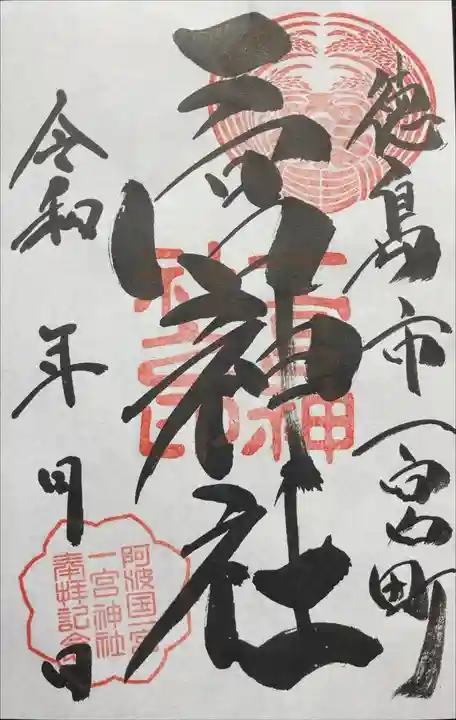 徳島市一宮町
一宮神社
令和 年 月 日
阿波国一宮
一宮神社
奉拝記念